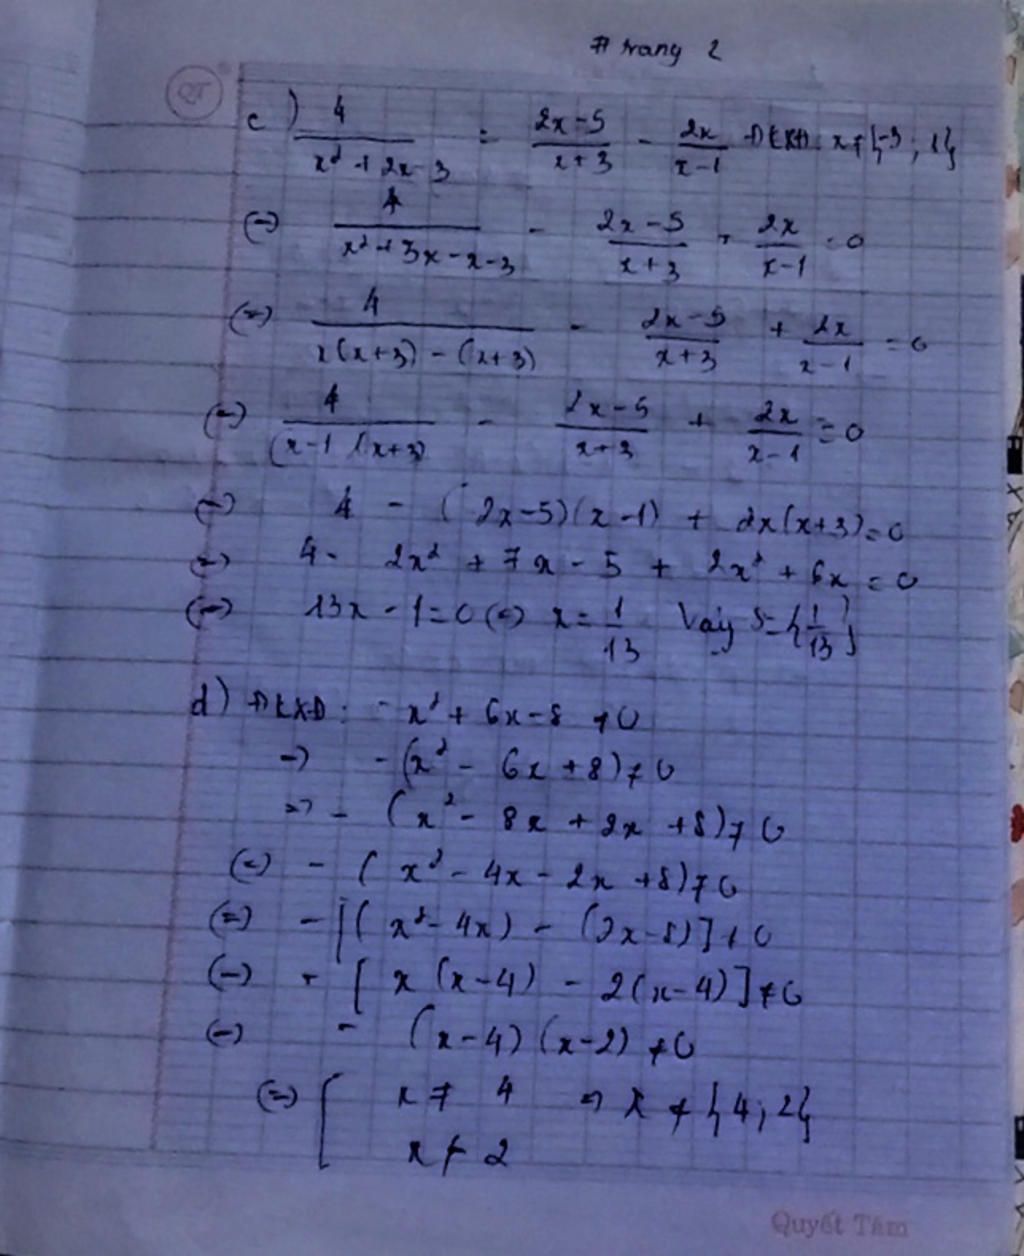 # trang 2
QT
c) 4/(x² + 2x - 3) = (2x-5)/(x+3) - 2x/(x-1) ĐKXĐ: x ≠ {-3; 1}
(=) 4/(x² + 3x - x - 3) - (2x-5)/(x+3) + 2x/(x-1) = 0
(=) 4/(x(x+3) - (x+3)) - (2x-5)/(x+3) + 2x/(x-1) = 0
(=) 4/((x-1)(x+3)) - (2x-5)/(x+3) + 2x/(x-1) = 0
(=) 4 - (2x-5)(x-1) + 2x(x+3) = 0
(=) 4 - 2x² + 7x - 5 + 2x² + 6x = 0
(=) 13x - 1 = 0 (=) x = 1/13 Vậy S = {1/13}
d) ĐKXĐ: -x² + 6x - 8 ≠ 0
=) -(x² - 6x + 8) ≠ 0
=) -(x² - 8x + 2x + 8) ≠ 0
(=) -(x² - 4x - 2x + 8) ≠ 0
(=) -[(x² - 4x) - (2x - 8)] ≠ 0
(=) -[x(x-4) - 2(x-4)] ≠ 0
(=) -(x-4)(x-2) ≠ 0
(=) { x ≠ 4 => x ≠ {4; 2}
x ≠ 2
Quyết Tâm